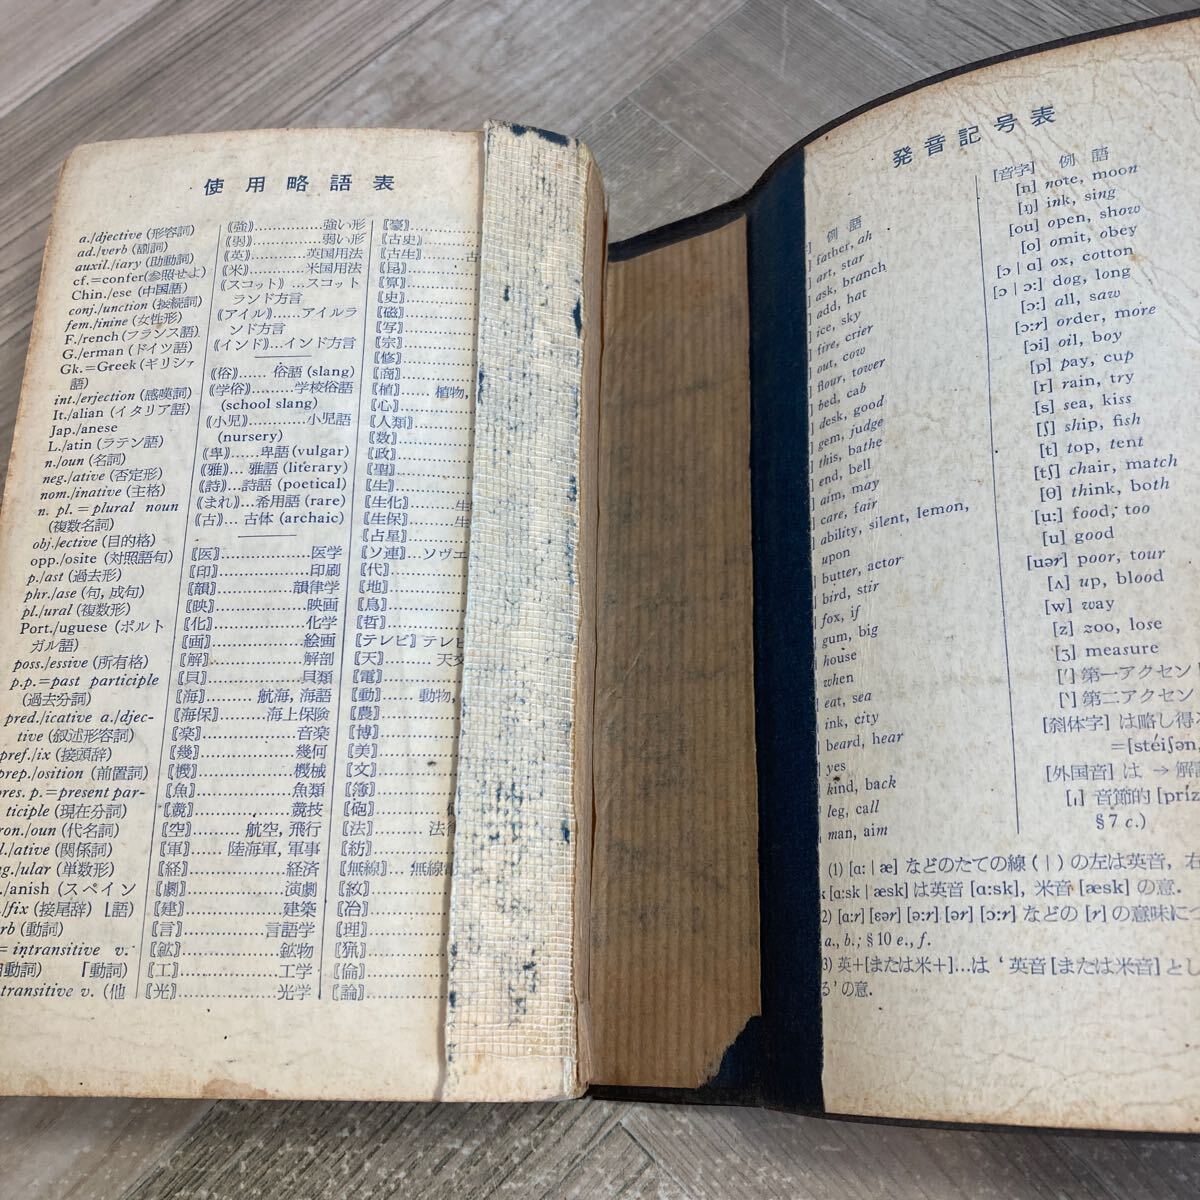 使用略語表
a./djective (形容詞)
ad./verb (副詞)
auxil./iary (助動詞)
cf.=confer(参照せよ)
Chin./ese (中国語)
conj./unction (接続詞)
fem./inine (女性形)
F./rench (フランス語)
G./erman (ドイツ語)
Gk.=Greek (ギリシァ
語)
int./erjection (感嘆詞)
It./alian (イタリア語)
Jap./anese
L./atin (ラテン語)
n./oun (名詞)
neg./ative (否定形)
nom./inative (主格)
n. pl.=plural noun
(複数名詞)
obj./ective (目的格)
opp./osite (対照語句)
p./ast (過去形)
phr./ase (句, 成句)
pl./ural (複数形)
Port./uguese (ポルト
ガル語)
poss./essive (所有格)
p.p.=past participle
(過去分詞)
pred./icative a./djec-
tive (叙述形容詞)
pref./ix (接頭辞)
prep./osition (前置詞)
pres. p.=present par-
ticiple (現在分詞)
ron./oun (代名詞)
l./ative (関係詞)
g./ular (単数形)
./anish (スペイン
./fix (接尾辞) ⌊語)
rb (動詞)
= intransitive v.
動詞) 「動詞)
transitive v. (他
⸨強⸩…………強い形
⸨弱⸩…………弱い形
⸨英⸩………英国用法
⸨米⸩………米国用法
⸨スコット⸩…スコット
ランド方言
⸨アイル⸩……アイルラ
ンド方言
⸨インド⸩…インド方言
⸨俗⸩…… 俗語 (slang)
⸨学俗⸩………学校俗語
(school slang)
⸨小児⸩…………小児語
(nursery)
⸨卑⸩……卑語 (vulgar)
⸨雅⸩… 雅語 (literary)
⸨詩⸩…詩語 (poetical)
⸨まれ⸩…希用語 (rare)
⸨古⸩… 古体 (archaic)
〘医〙……………医学
〘印〙……………印刷
〘韻〙…………韻律学
〘映〙……………映画
〘化〙……………化学
〘画〙……………絵画
〘解〙……………解剖
〘貝〙……………貝類
〘海〙……… 航海, 海語
〘海保〙………海上保険
〘楽〙……………音楽
〘幾〙……………幾何
〘機〙……………機械
〘魚〙……………魚類
〘競〙……………競技
〘空〙……… 航空, 飛行
〘軍〙…… 陸海軍, 軍事
〘経〙……………経済
〘劇〙……………演劇
〘建〙……………建築
〘言〙…………言語学
〘鉱〙……………鉱物
〘工〙……………工学
〘光〙……………光学
〘豪〙
〘古史〙
〘古生〙……… 古
〘昆〙
〘算〙
〘史〙
〘磁〙
〘写〙
〘宗〙
〘修〙
〘商〙
〘植〙…… 植物,
〘心〙
〘人類〙
〘数〙
〘政〙
〘聖〙
〘生〙
〘生化〙……… 生
〘生保〙……… 生
〘占星〙
〘ソ連〙… ソヴエ
〘代〙
〘地〙
〘鳥〙
〘哲〙
〘テレビ〙テレビ
〘天〙……… 天文
〘電〙
〘動〙…… 動物,
〘農〙
〘博〙
〘美〙
〘文〙
〘簿〙
〘砲〙
〘法〙…… 法
〘紡〙
〘無線〙… 無線
〘紋〙
〘冶〙
〘理〙
〘猟〙
〘倫〙
〘論〙
発音記号表
例 語
] father, ah
] art, star
] ask, branch
] add, hat
] ice, sky
] fire, crier
] out, cow
] flour, tower
] bed, cab
] desk, good
] gem, judge
] this, bathe
] end, bell
] aim, may
] care, fair
] ability, silent, lemon,
upon
] butter, actor
] bird, stir
] fox, if
] gum, big
] house
] when
] eat, sea
] ink, city
] beard, hear
] yes
] kind, back
] leg, call
] man, aim
[音字] 例 語
[n] note, moon
[ŋ] ink, sing
[ou] open, show
[o] omit, obey
[ɔ | ɑ] ox, cotton
[ɔ | ɔ:] dog, long
[ɔ:] all, saw
[ɔ:r] order, more
[ɔi] oil, boy
[p] pay, cup
[r] rain, try
[s] sea, kiss
[ʃ] ship, fish
[t] top, tent
[tʃ] chair, match
[θ] think, both
[u:] food, too
[u] good
[uər] poor, tour
[ʌ] up, blood
[w] way
[z] zoo, lose
[ʒ] measure
[ˊ] 第一アクセン
[ˋ] 第二アクセン
[斜体字] は略し得
=[stéiʃən,
[外国音] は → 解
[ˌ] 音節的 [príz
§7 c.)
(1) [ɑ: | æ] などのたての線 ( | ) の左は英音, 右
k [ɑ:sk | æsk] は英音 [ɑ:sk], 米音 [æsk] の意.
2) [ɑ:r] [ɛər] [ə:r] [ər] [ɔ:r] などの [r] の意味に
a., b.; §10 e., f.
3) 英+[または米+]…は ' 英音 [または米音] とし
る' の意.